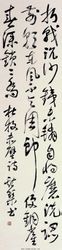 折戟沉沙鐵未銷自將磨洗
認前朝東風不與周郎便銅雀
春深鎖二喬 杜牧赤壁詩